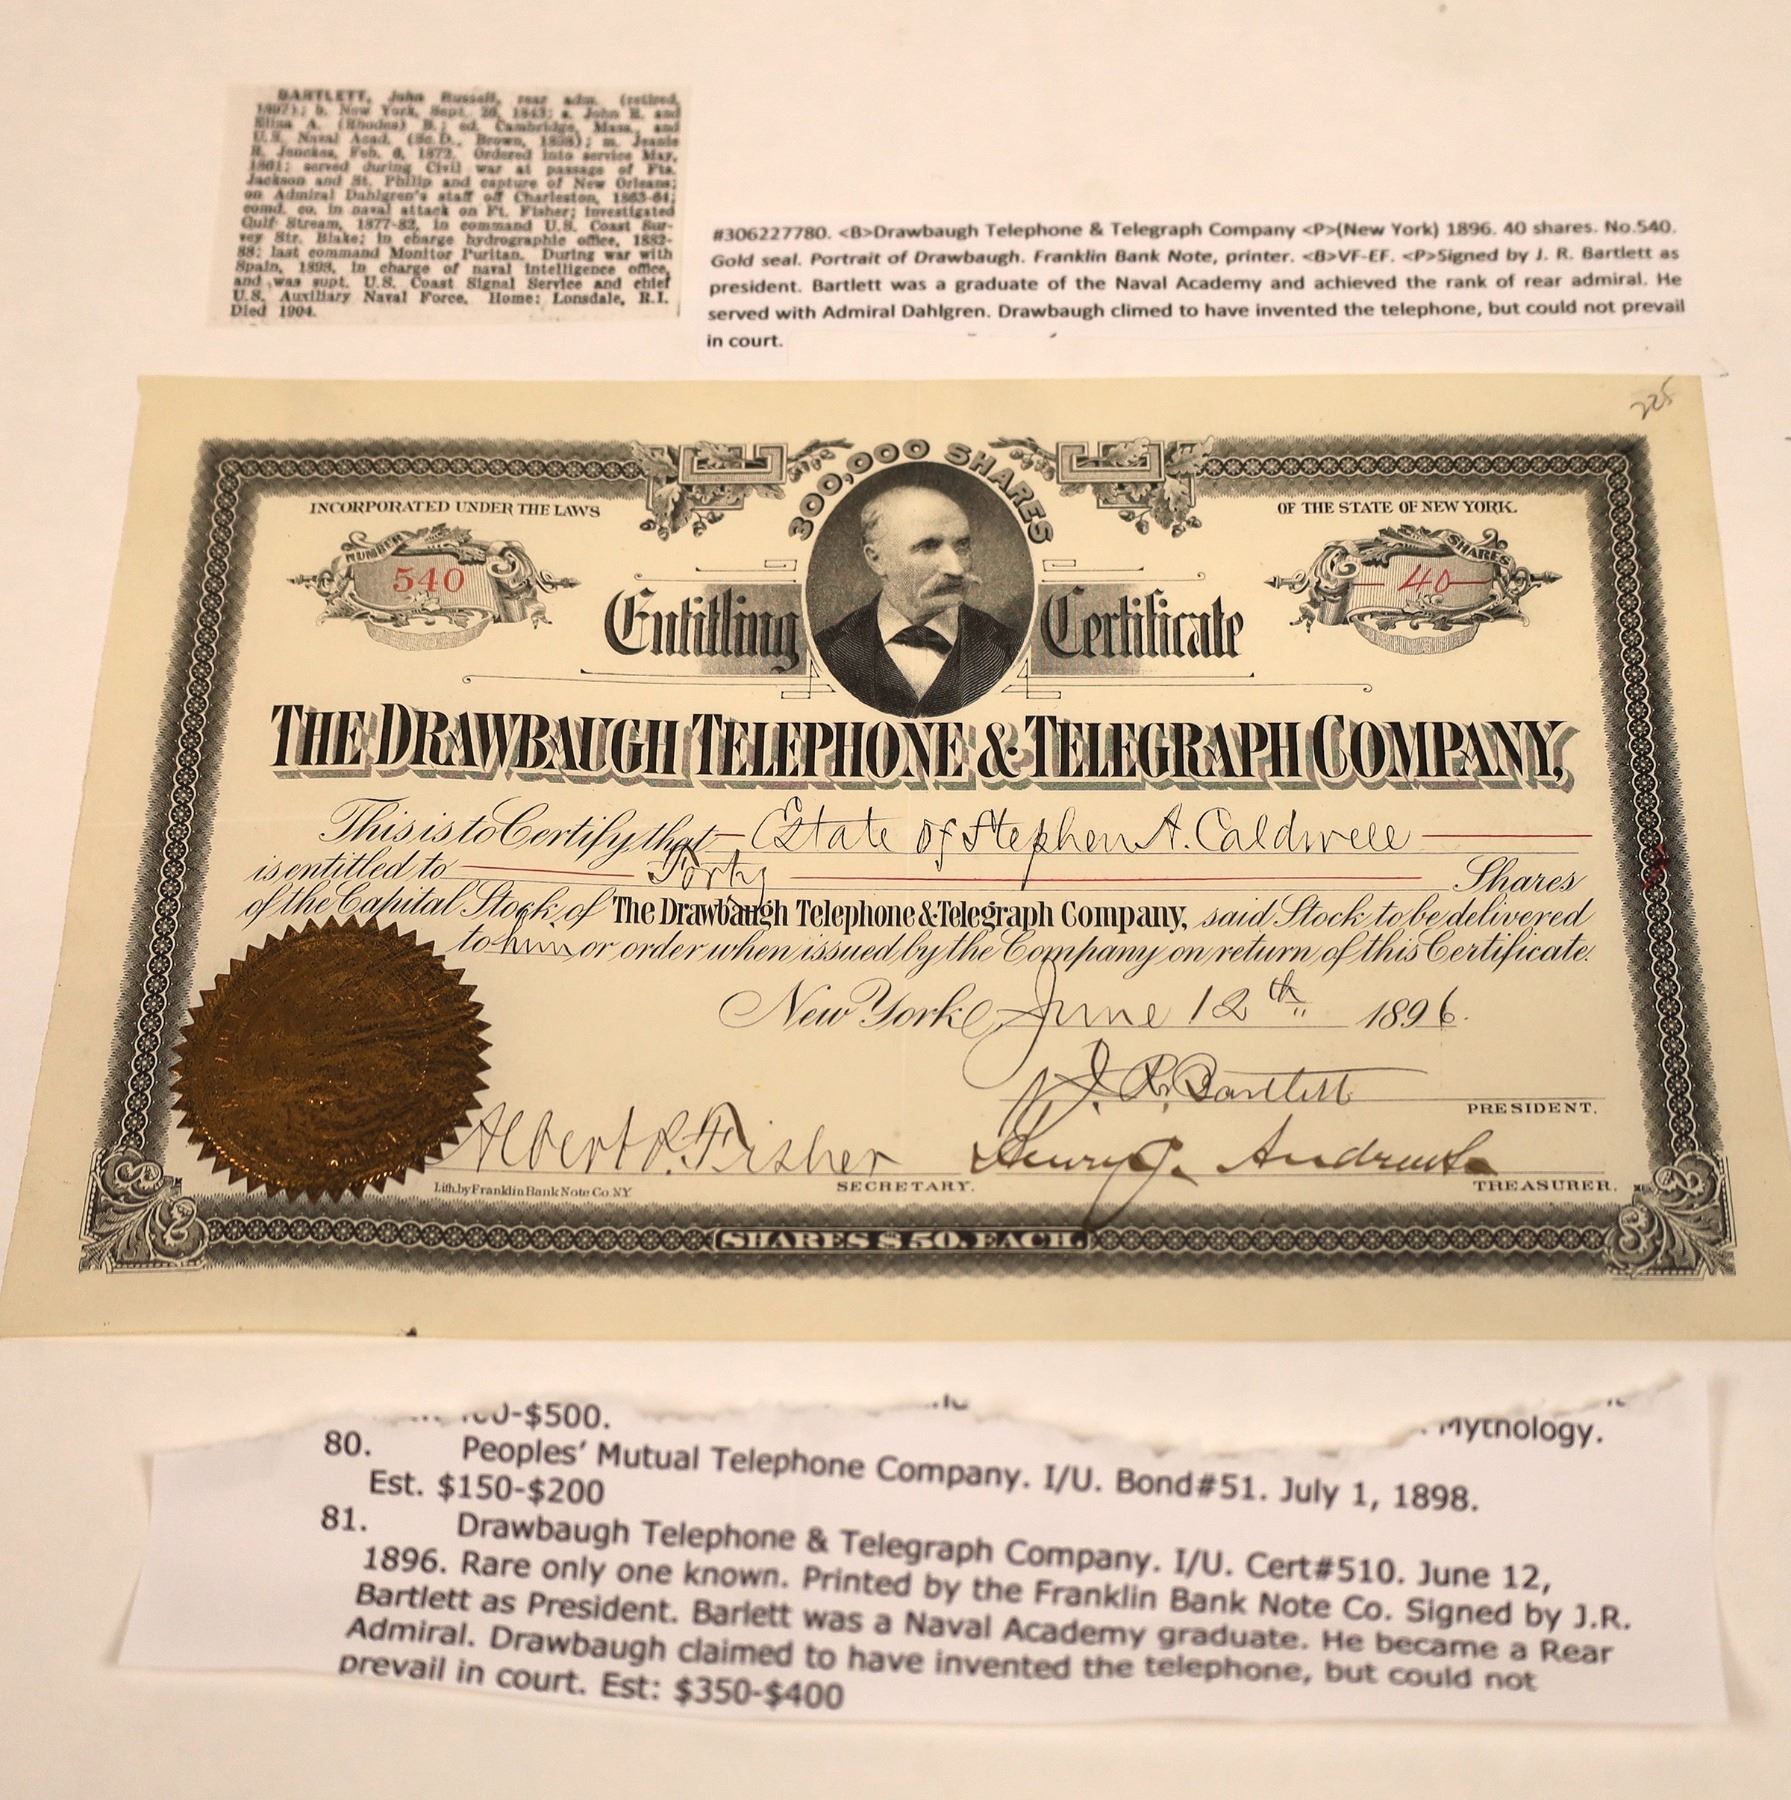 BARTLETT, John Russell, rear adm. (retired,
1897); b. New York, Sept. 26, 1843; s. John R. and
Eliza A. (Rhodes) B.; ed. Cambridge, Mass., and
U.S. Naval Acad. (Sc.D., Brown, 1898); m. Jeanie
R. Jenckes, Feb. 6, 1872. Ordered into service May,
1861; served during Civil war at passage of Fts.
Jackson and St. Philip and capture of New Orleans;
on Admiral Dahlgren's staff off Charleston, 1863-64;
comd. co. in naval attack on Ft. Fisher; investigated
Gulf Stream, 1877-82, in command U.S. Coast Sur-
vey Str. Blake; in charge hydrographic office, 1882-
88; last command Monitor Puritan. During war with
Spain, 1898, in charge of naval intelligence office,
and was supt. U.S. Coast Signal Service and chief
U.S. Auxiliary Naval Force. Home: Lonsdale, R.I.
Died 1904.
#306227780. <B>Drawbaugh Telephone & Telegraph Company <P>(New York) 1896. 40 shares. No.540.
Gold seal. Portrait of Drawbaugh. Franklin Bank Note, printer. <B>VF-EF. <P>Signed by J. R. Bartlett as
president. Bartlett was a graduate of the Naval Academy and achieved the rank of rear admiral. He
served with Admiral Dahlgren. Drawbaugh climed to have invented the telephone, but could not prevail
in court.
225
300,000 SHARES
INCORPORATED UNDER THE LAWS
OF THE STATE OF NEW YORK.
NUMBER
540
SHARES
40
Entitling Certificate
THE DRAWBAUGH TELEPHONE & TELEGRAPH COMPANY,
This is to Certify that Estate of Stephen A. Caldwell
is entitled to Forty Shares
of the Capital Stock of The Drawbaugh Telephone & Telegraph Company, said Stock to be delivered
to him or order when issued by the Company on return of this Certificate.
New York, June 12th 1896.
J. R. Bartlett
PRESIDENT.
Albert R. Fisher Henry J. Andrews
SECRETARY. TREASURER.
Lith. by Franklin Bank Note Co. N.Y.
SHARES $50. EACH.
-$500.
Mythology.
80. Peoples' Mutual Telephone Company. I/U. Bond#51. July 1, 1898.
Est. $150-$200
81. Drawbaugh Telephone & Telegraph Company. I/U. Cert#510. June 12,
1896. Rare only one known. Printed by the Franklin Bank Note Co. Signed by J.R.
Bartlett as President. Barlett was a Naval Academy graduate. He became a Rear
Admiral. Drawbaugh claimed to have invented the telephone, but could not
prevail in court. Est: $350-$400